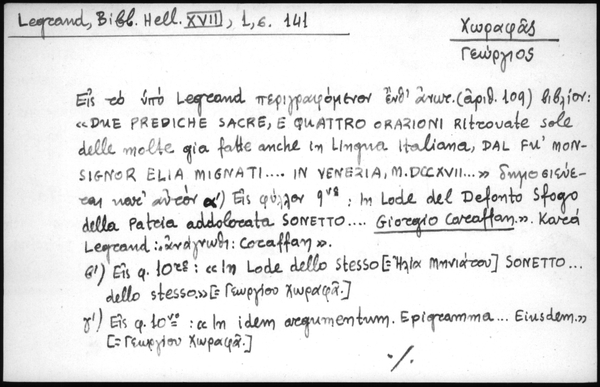 Legrand, Bibl. Hell. XVII, 1, σ. 141
Χωραφᾶς
Γεώργιος
Εἰς τὸ ὑπό Legrand περιγραφόμενον ἔνθ' ἀνωτ. (ἀριθ. 109) βιβλίον:
«DUE PREDICHE SACRE, E QUATTRO ORAZIONI Ritrovate sole
delle molte gia fatte anche in Lingua italiana, DAL FU' MON-
SIGNOR ELIA MIGNATI.... IN VENEZIA, M.DCCXVII...» δημοσιεύε-
ται κατ' αὐτόν α') Εἰς φύλλον 9vs : In Lode del Defonto Sfogo
della Patria addolorata SONETTO.... Giorgio Caraffan.». Κατά
Legrand: «ἀνάγνωθι: Coraffan».
β') Εἰς φ. 10rs : «In Lode dello stesso [= Ἠλία Μηνιάτου] SONETTO...
dello stesso» [= Γεωργίου Χωραφᾶ.]
γ') Εἰς φ. 10vo : «In idem argumentum. Epigramma... Eiusdem.»
[= Γεωργίου Χωραφᾶ.]
./.